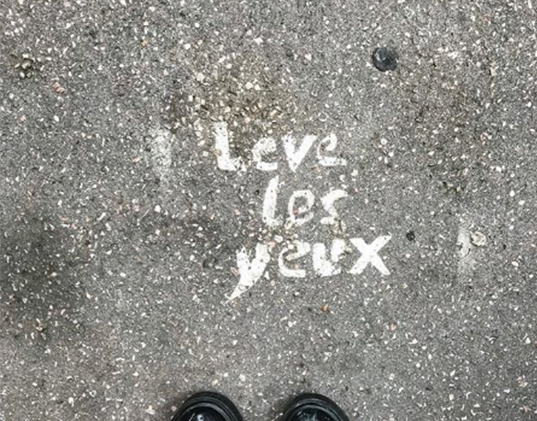 Leve
les
yeux